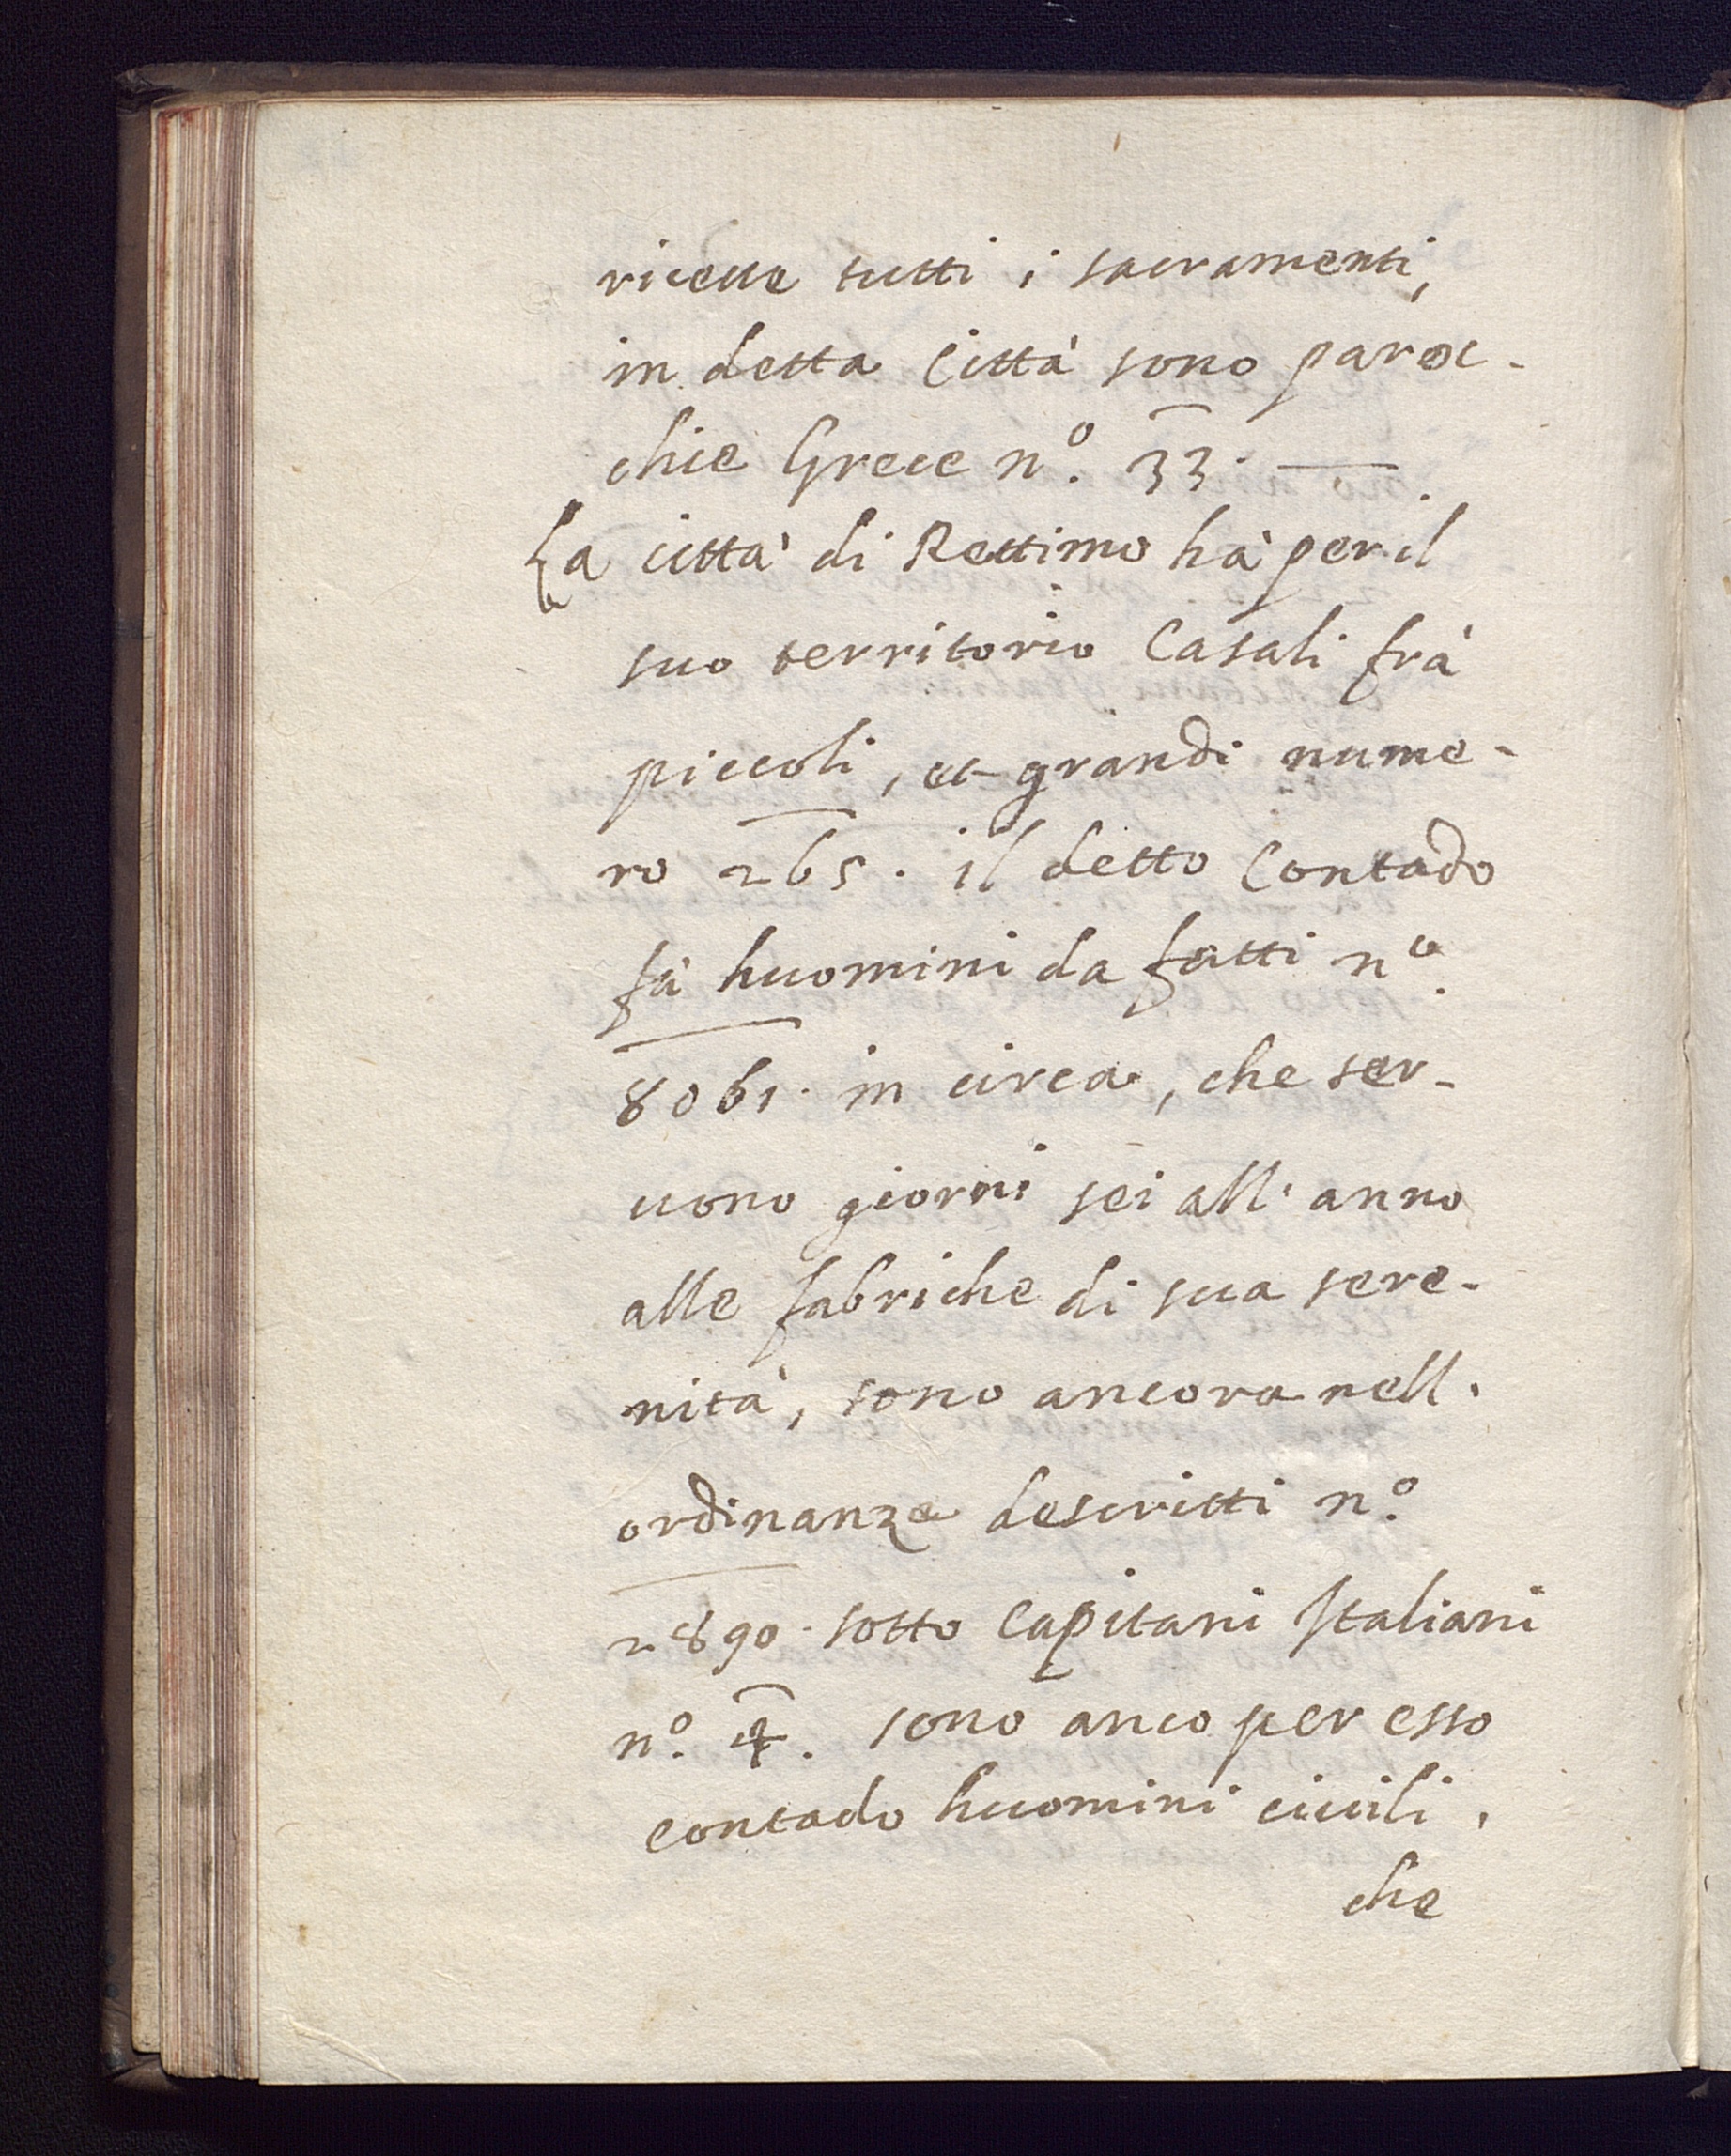 riceue tutti i sacramenti,
in detta Città sono paroc-
chie Grece nº. 33. —.
La città di Rettimo hà per il
suo territorio Casali frà
piccoli, et grandi nume-
ro 265. il detto Contado
fà huomini da fatti nº.
8061. in circa, che ser-
uono giorni sei all' anno
alle fabriche di sua sere-
nità, sono ancora nell'
ordinanze descritti nº.
2890. sotto Capitani Italiani
nº. 4. sono anco per esso
contado huomini ciuili,
che